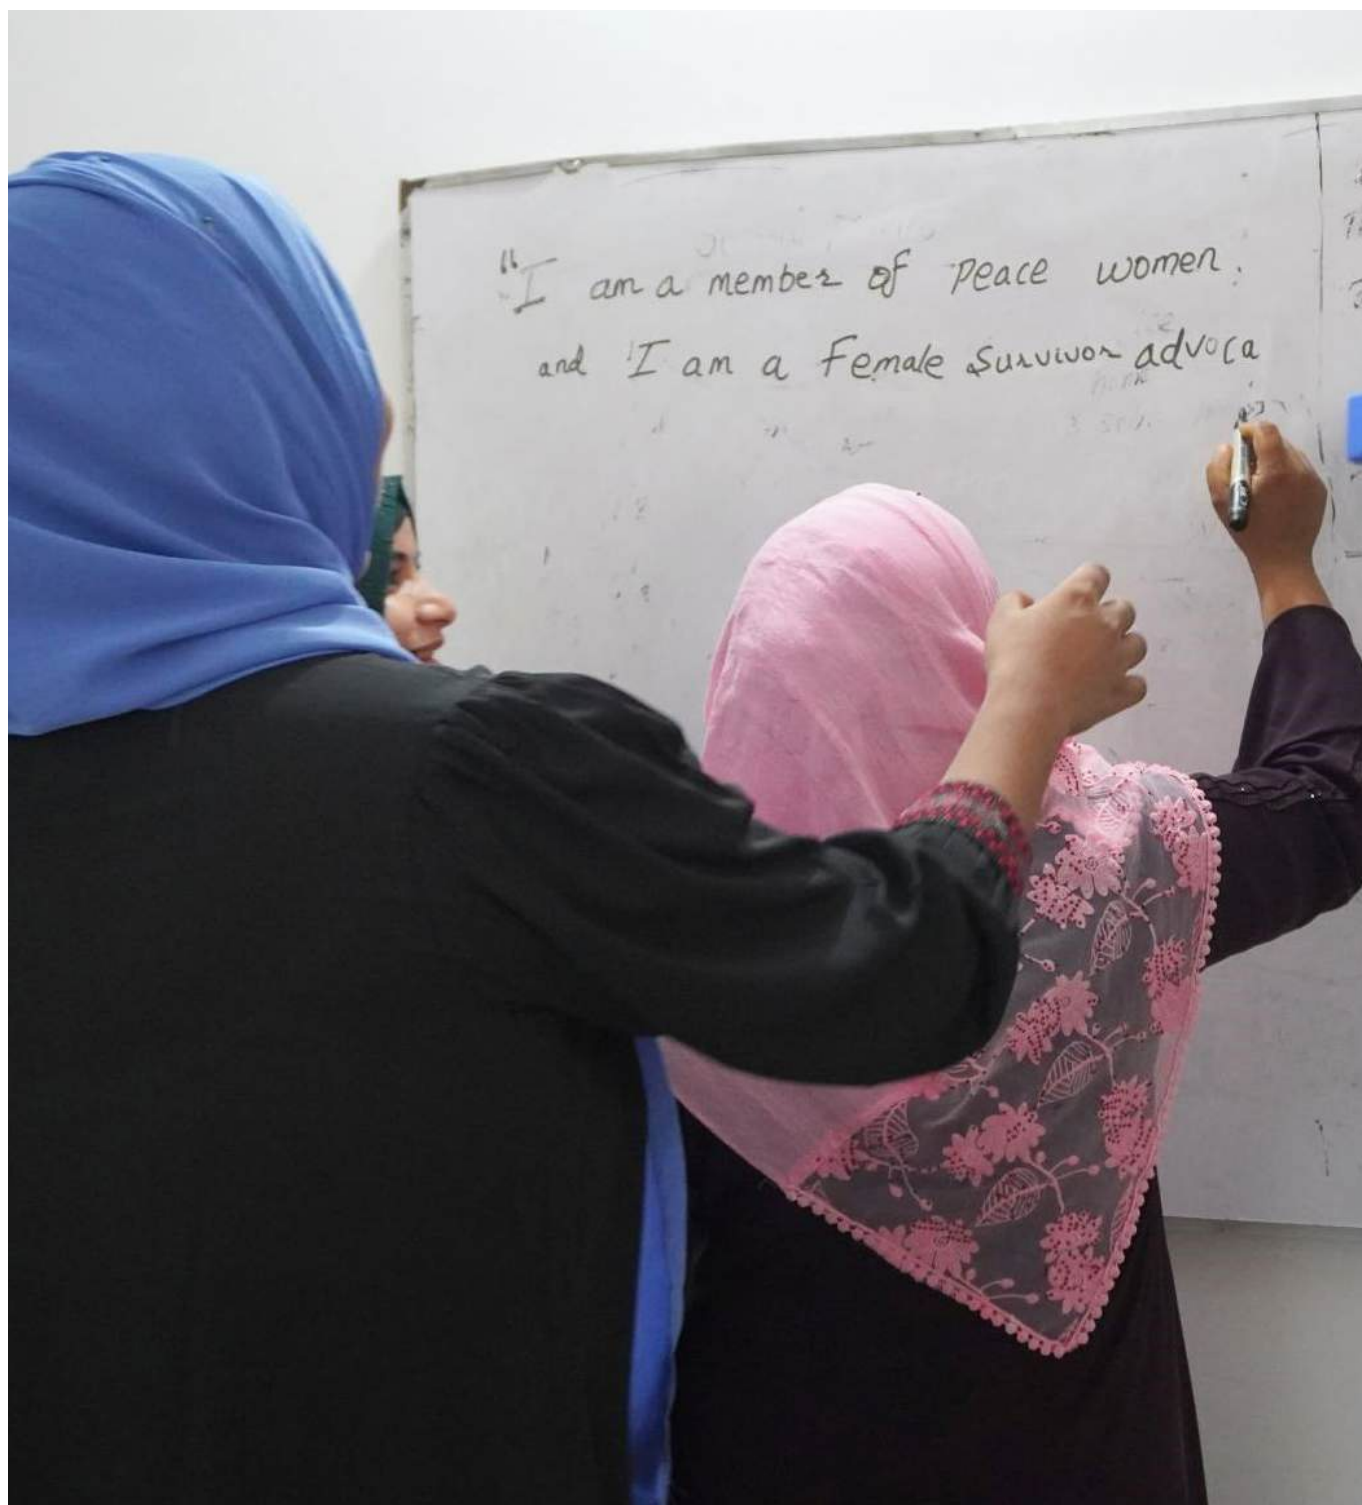 “I am a member of peace women.
and I am a Female Survivor advoca